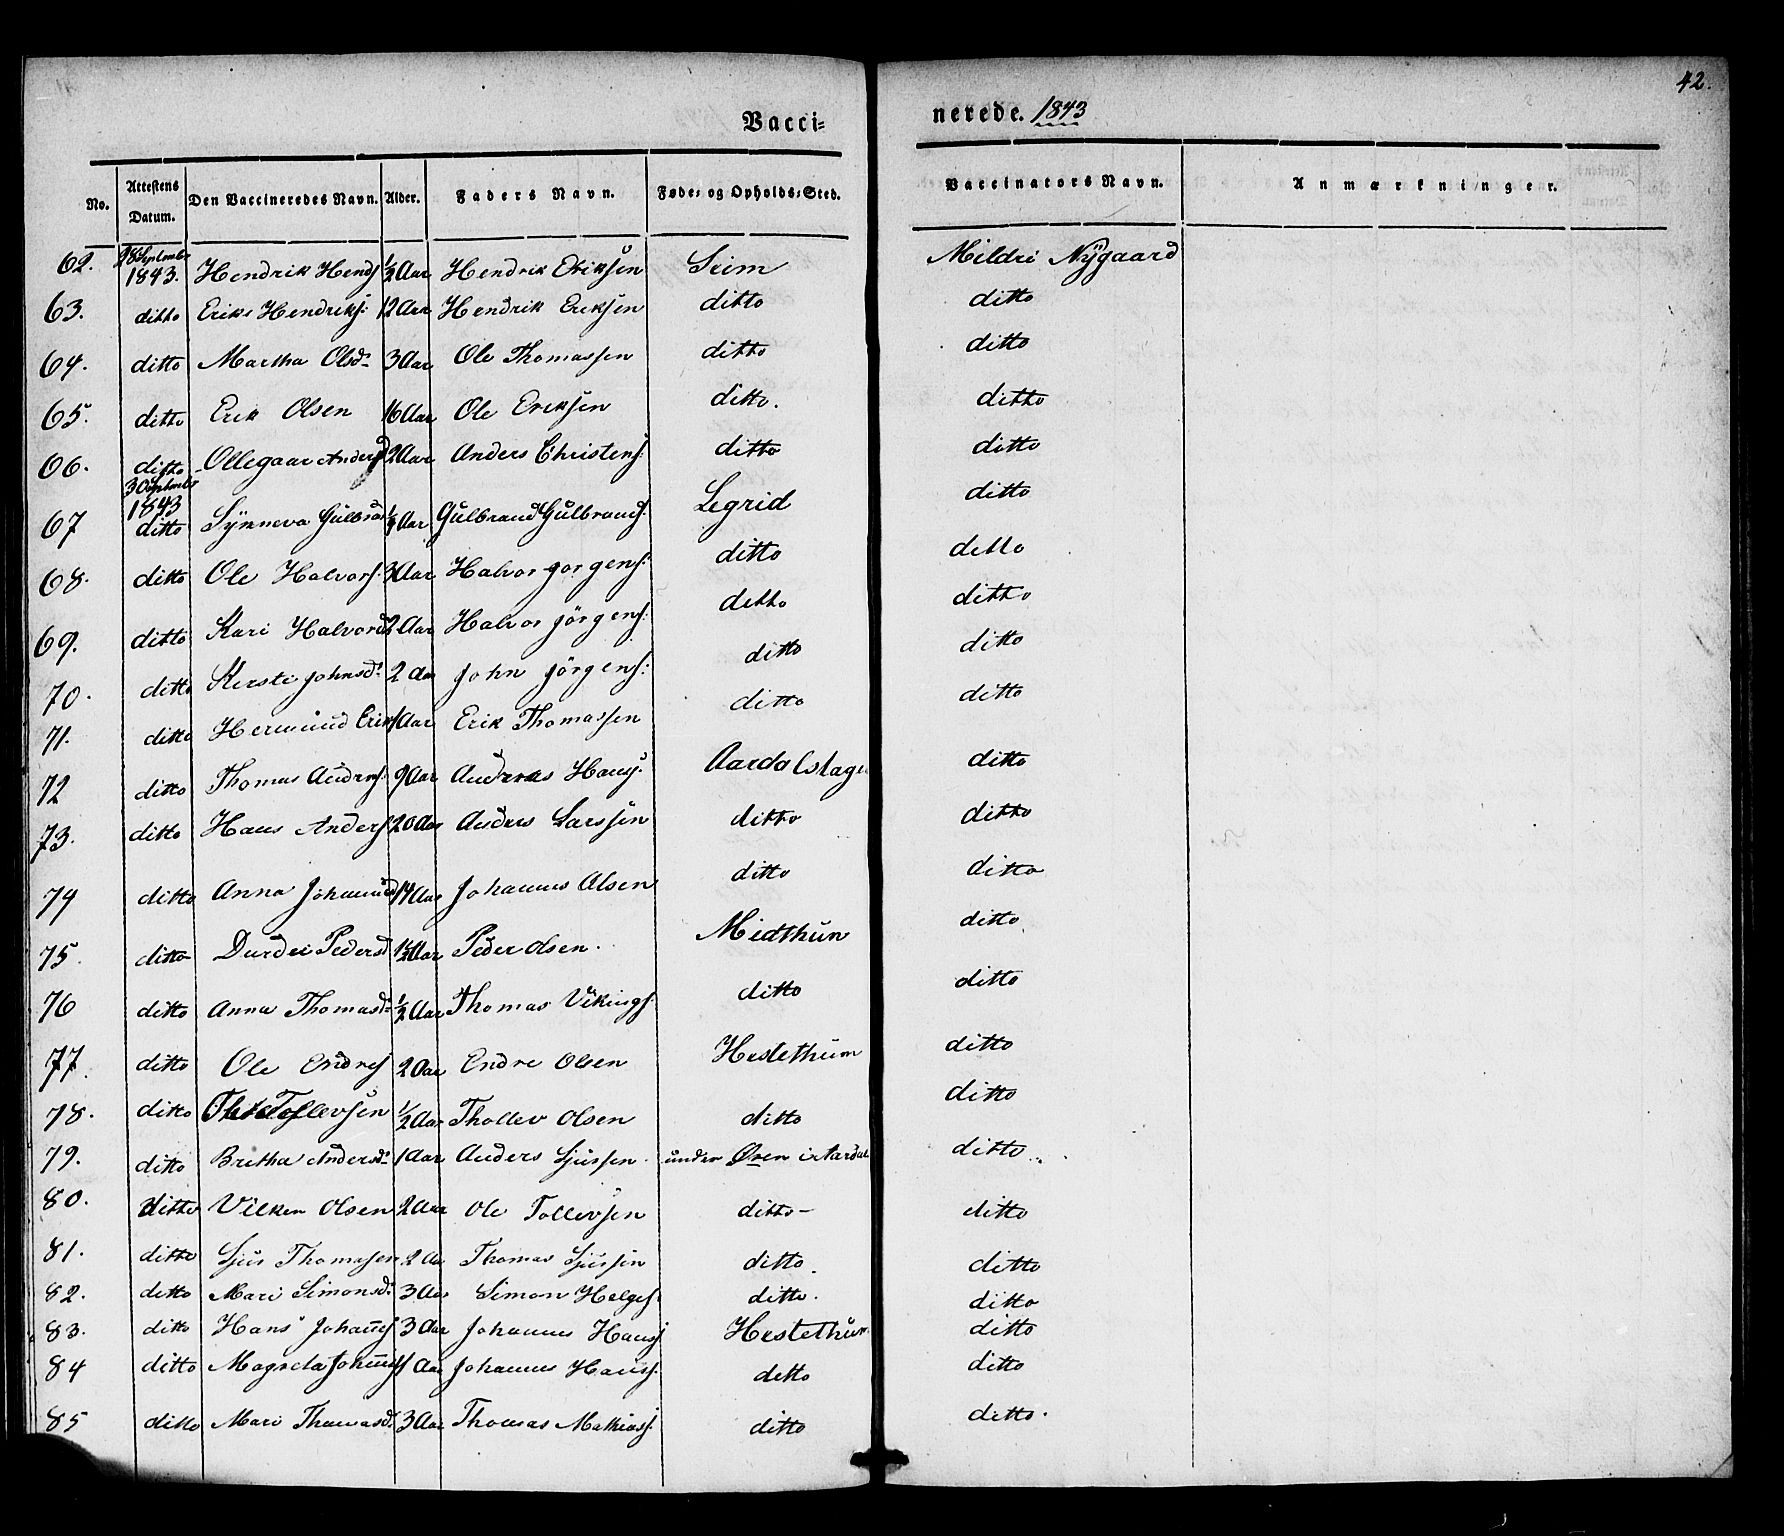 42.
Vacci= nerede. 1843
No. Attestens Datum. Den Vaccineredes Navn. Alder. Faders Navn. Føde= og Opholds=Sted. Vaccinators Navn. Anmærkninger.
62. 28 September 1843. Hendrik Hends 1/2 Aar Hendrik Eriksen Seim Mildri Nÿgaard
63. ditto Erik Hendriks: 12 Aar Hendrik Eriksen ditto ditto
64. ditto Martha Olsd: 3 Aar Ole Thomassen ditto ditto
65. ditto Erik Olsen 16 Aar Ole Eriksen ditto. ditto
66. ditto Ollegaar Andersd 2 Aar Anders Christens: ditto ditto
67 30 September 1843 ditto Sÿnneva Gulbrd Aar Gulbrand Gulbrands: Legrid ditto
68. ditto Ole Halvors: 3 Aar Halvor Jorgens: ditto ditto
69. ditto Kari Halvord 2 Aar Halvor Jörgens: ditto ditto
70. ditto Kersti Johnsd: 2 Aar John Jörgens: ditto ditto
71. ditto Hermund Eriks 1 Aar Erik Thomassen ditto ditto
72 ditto Thomas Anders: 9 Aar Andreas Hans: Aardalstage ditto
73. ditto Hans Anders 20 Aar Anders Larssen ditto ditto
74 ditto Anna Johannesd 14 Aar Johannes Olsen ditto ditto
75. ditto Durdei Pedersd Aar Peder Olsen. Midthun ditto
76 ditto Anna Thomasd: 1/2 Aar Thomas Vikings: ditto ditto
77. ditto Ole Endres 2 Aar Endre Olsen Hestethum ditto
78. ditto Tollevsen 1/2 Aar Thollev Olsen ditto ditto
79. ditto Britha Andersd: 1 Aar Anders Sjussen. under Øren i Aardal ditto
80. ditto Vilken Olsen 2 Aar Ole Tollevsen ditto ditto
81. ditto Sjur Thomassen 2 Aar Thomas Sjussen ditto. ditto
82. ditto Mari Simonsd: 3 Aar Simon Helges: ditto. ditto
83. ditto Hans Johans 3 Aar Johannes Hans: Hestethun ditto
84 ditto Magreta Johannesd 1 Aar Johannes Hans: ditto ditto
85 ditto Mari Thomasd: 3 Aar Thomas Mathias: ditto ditto.